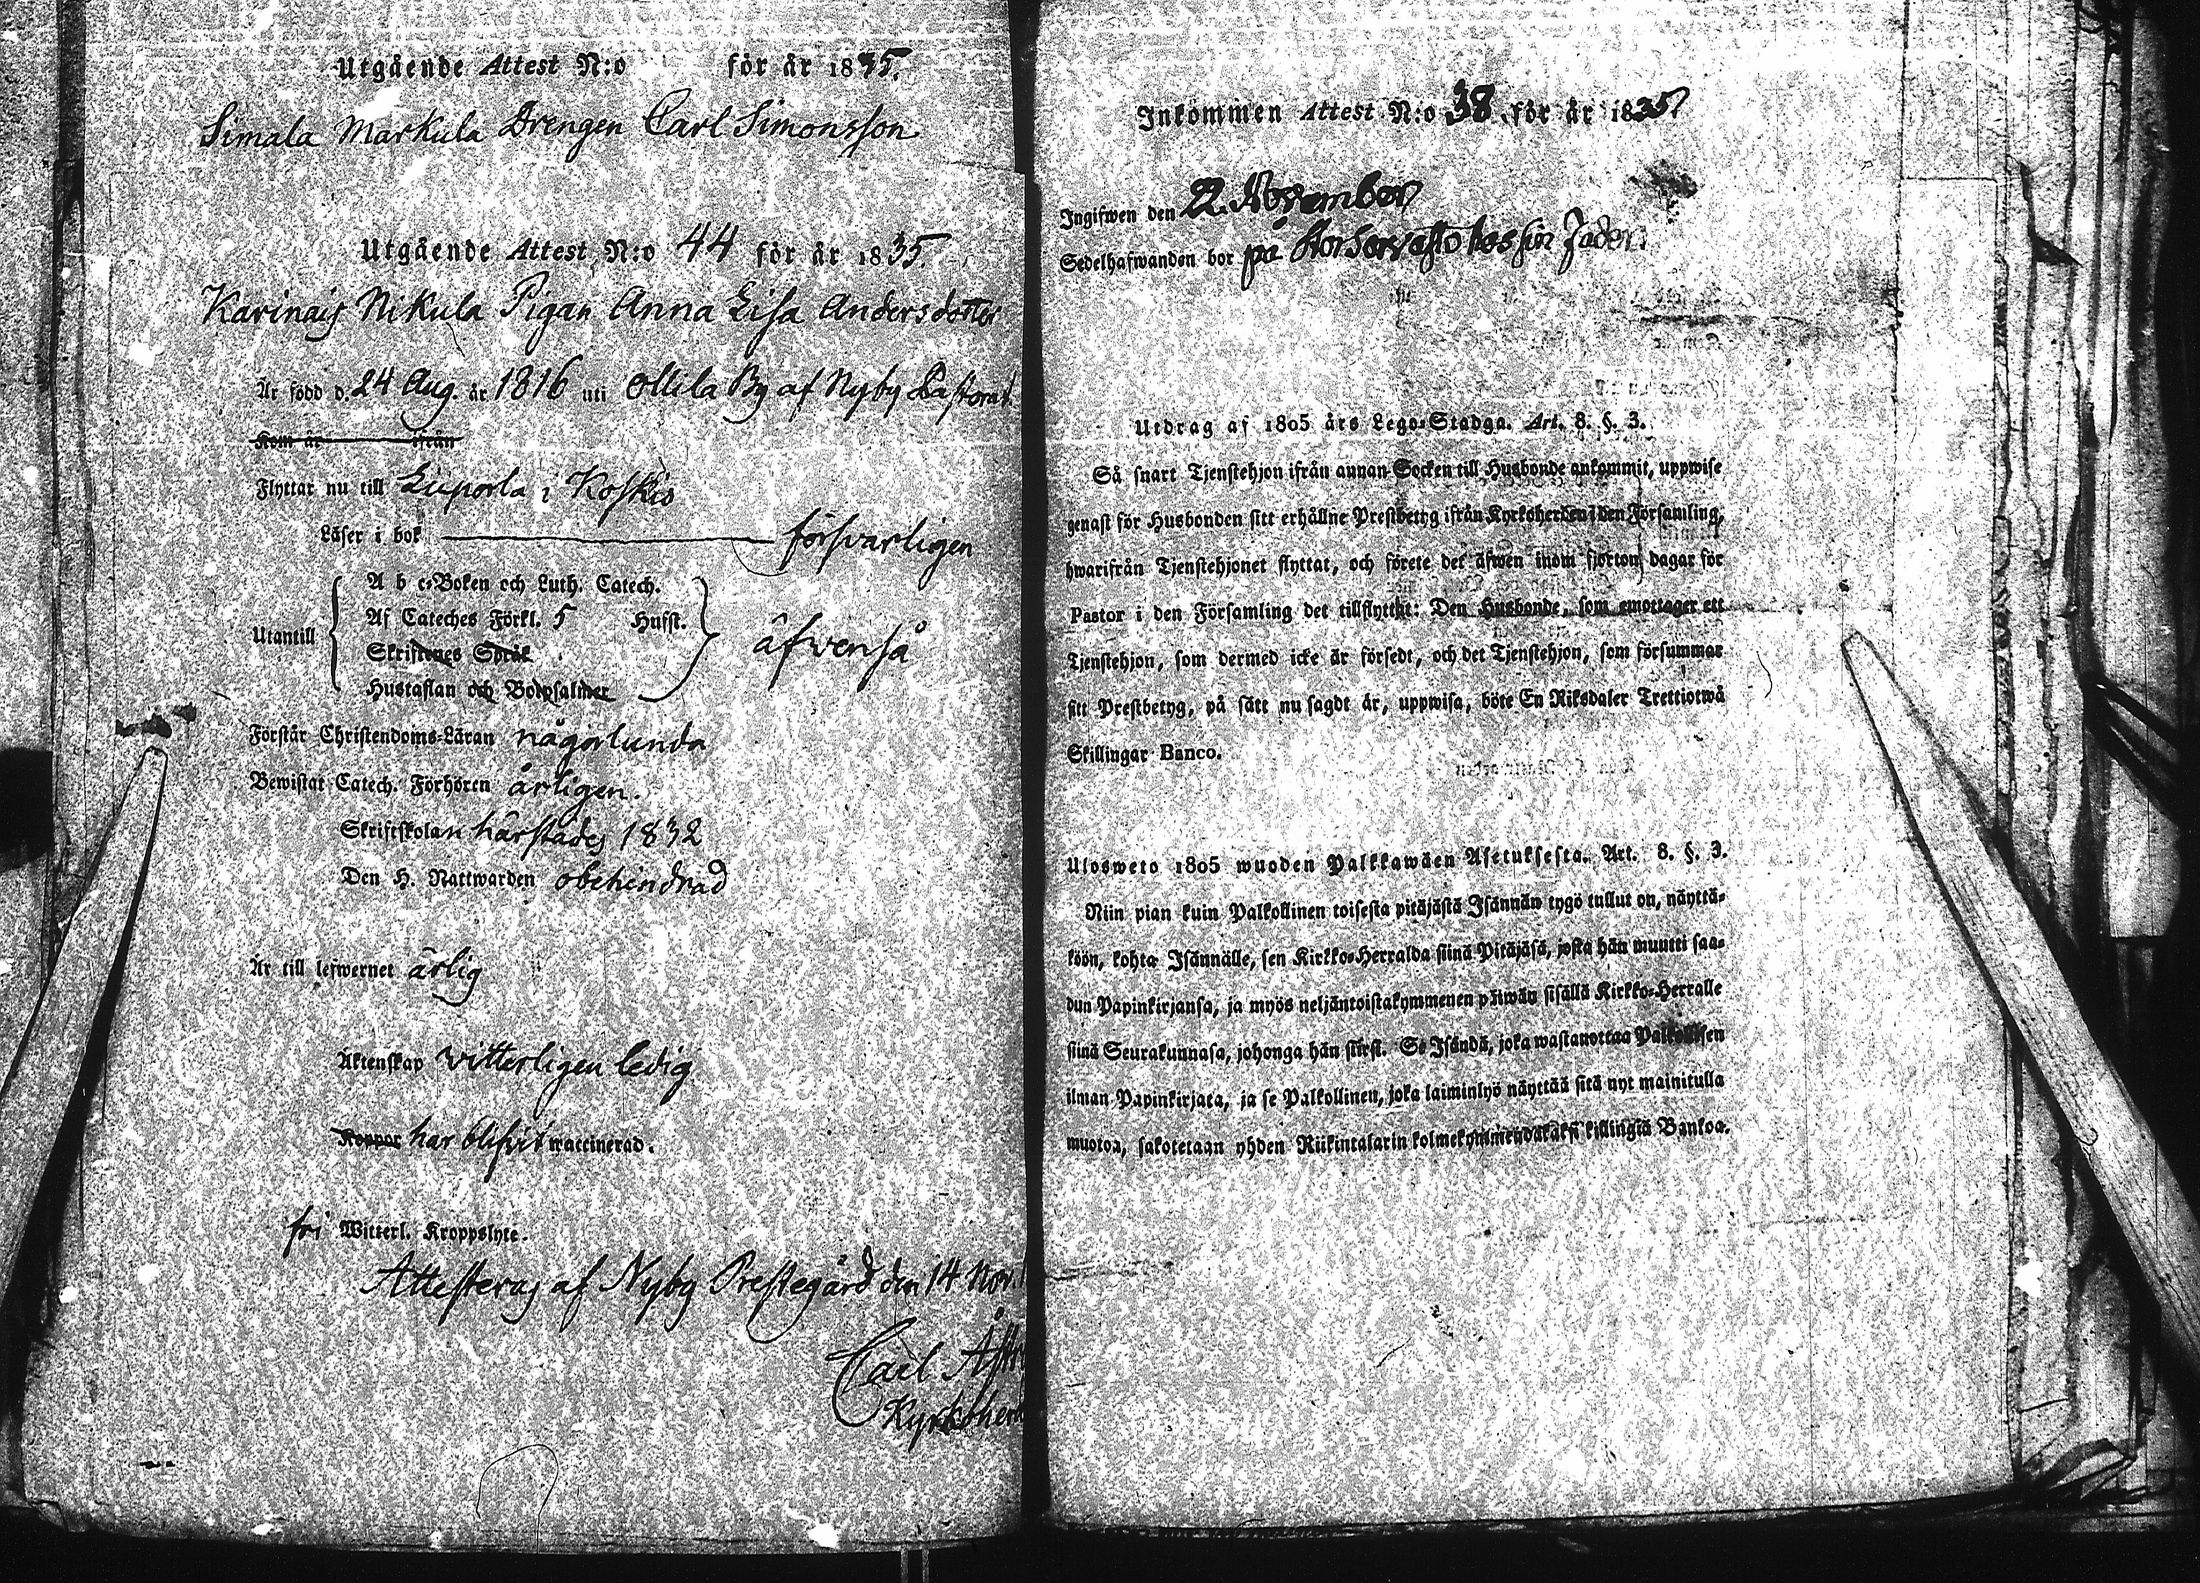 Utgående Attest N:o för år 1835.
Simala Markula Drengen Carl Simonsson
Utgående Attest N:o 44 för år 1835.
Karinais Nikula Pigan Anna Lisa Andersdotter
Är född d. 24 Aug. år 1816 uti Ollila By af Nyby Pastorat
Kom år ifrån
Flyttar nu till Liiporla i Koskis
Läser i bok försvarligen
A b c-Boken och Luth. Catech.
Af Cateches Förkl. 5 Hufst.
Utantill äfvenså
Skriftenes Språk
Hustaflan och Botpsalmer
Förstår Christendoms-Läran någorlunda
Bewistat Catech. Förhören årligen.
Skriftskolan härstädes 1832
Den H. Nattwarden obehindrad
Är till lefwernet ärlig
Äktenskap vitterligen ledig
Koppor har blifvit waccinerad.
fri Witterl. Kroppslyte.
Attesteras af Nyby Prestegård den 14 Nov.
Carl
Kyrkoherd
Inkommen Attest N:o 38 för år 1835
Ingifwen den 22 November
Sedelhafwanden bor på hos sin Fader.
Utdrag af 1805 års Lego-Stadga. Art. 8. §. 3.
Så snart Tjenstehjon ifrån annan Socken till Husbonde ankommit, uppwise
genast för Husbonden sitt erhållne Prestbetyg ifrån Kyrkoherden i den Församling,
hwarifrån Tjenstehjonet flyttat, och förete det äfwen inom fjorton dagar för
Pastor i den Församling det tillflyttat: Den Husbonde, som emottager ett
Tjenstehjon, som dermed icke är försedt, och det Tjenstehjon, som försummar
sitt Prestbetyg, på sätt nu sagdt är, uppwisa, böte En Riksdaler Trettiotwå
Skillingar Banco.
Ulosweto 1805 wuoden Palkkawäen Asetuksesta. Art. 8. §. 3.
Niin pian kuin Palkollinen toisesta pitäjästä Isännän tygö tullut on, näyttä-
köön, kohta Isännälle, sen Kirkko-Herralda siinä Pitäjäsä, josta hän muutti saa-
dun Papinkirjansa, ja myös neljäntoistakymmenen päiwän sisällä Kirkko-Herralle
siinä Seurakunnasa, johonga hän siirsi. Se Isändä, joka wastanottaa Palkollisen
ilman Papinkirjata, ja se Palkollinen, joka laiminlyö näyttää sitä nyt mainitulla
muotoa, sakotetaan yhden Riikintalarin kolmekymmendäkaksi killingiä Bankoa.